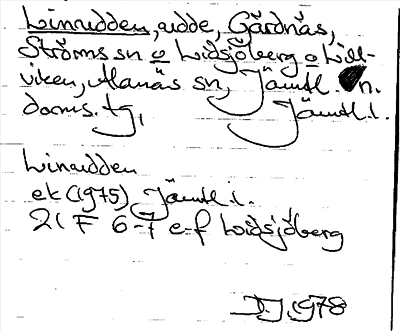 Linudden, udde, Gärdnäs,
Ströms sn o Lidsjöberg o Lill-
viken, Alanäs sn, Jämtl. n.
doms. tg, Jämtl. l.
Linudden
ek (1975) Jämtl. l.
21 F 6-7 e-f Lidsjöberg
1978